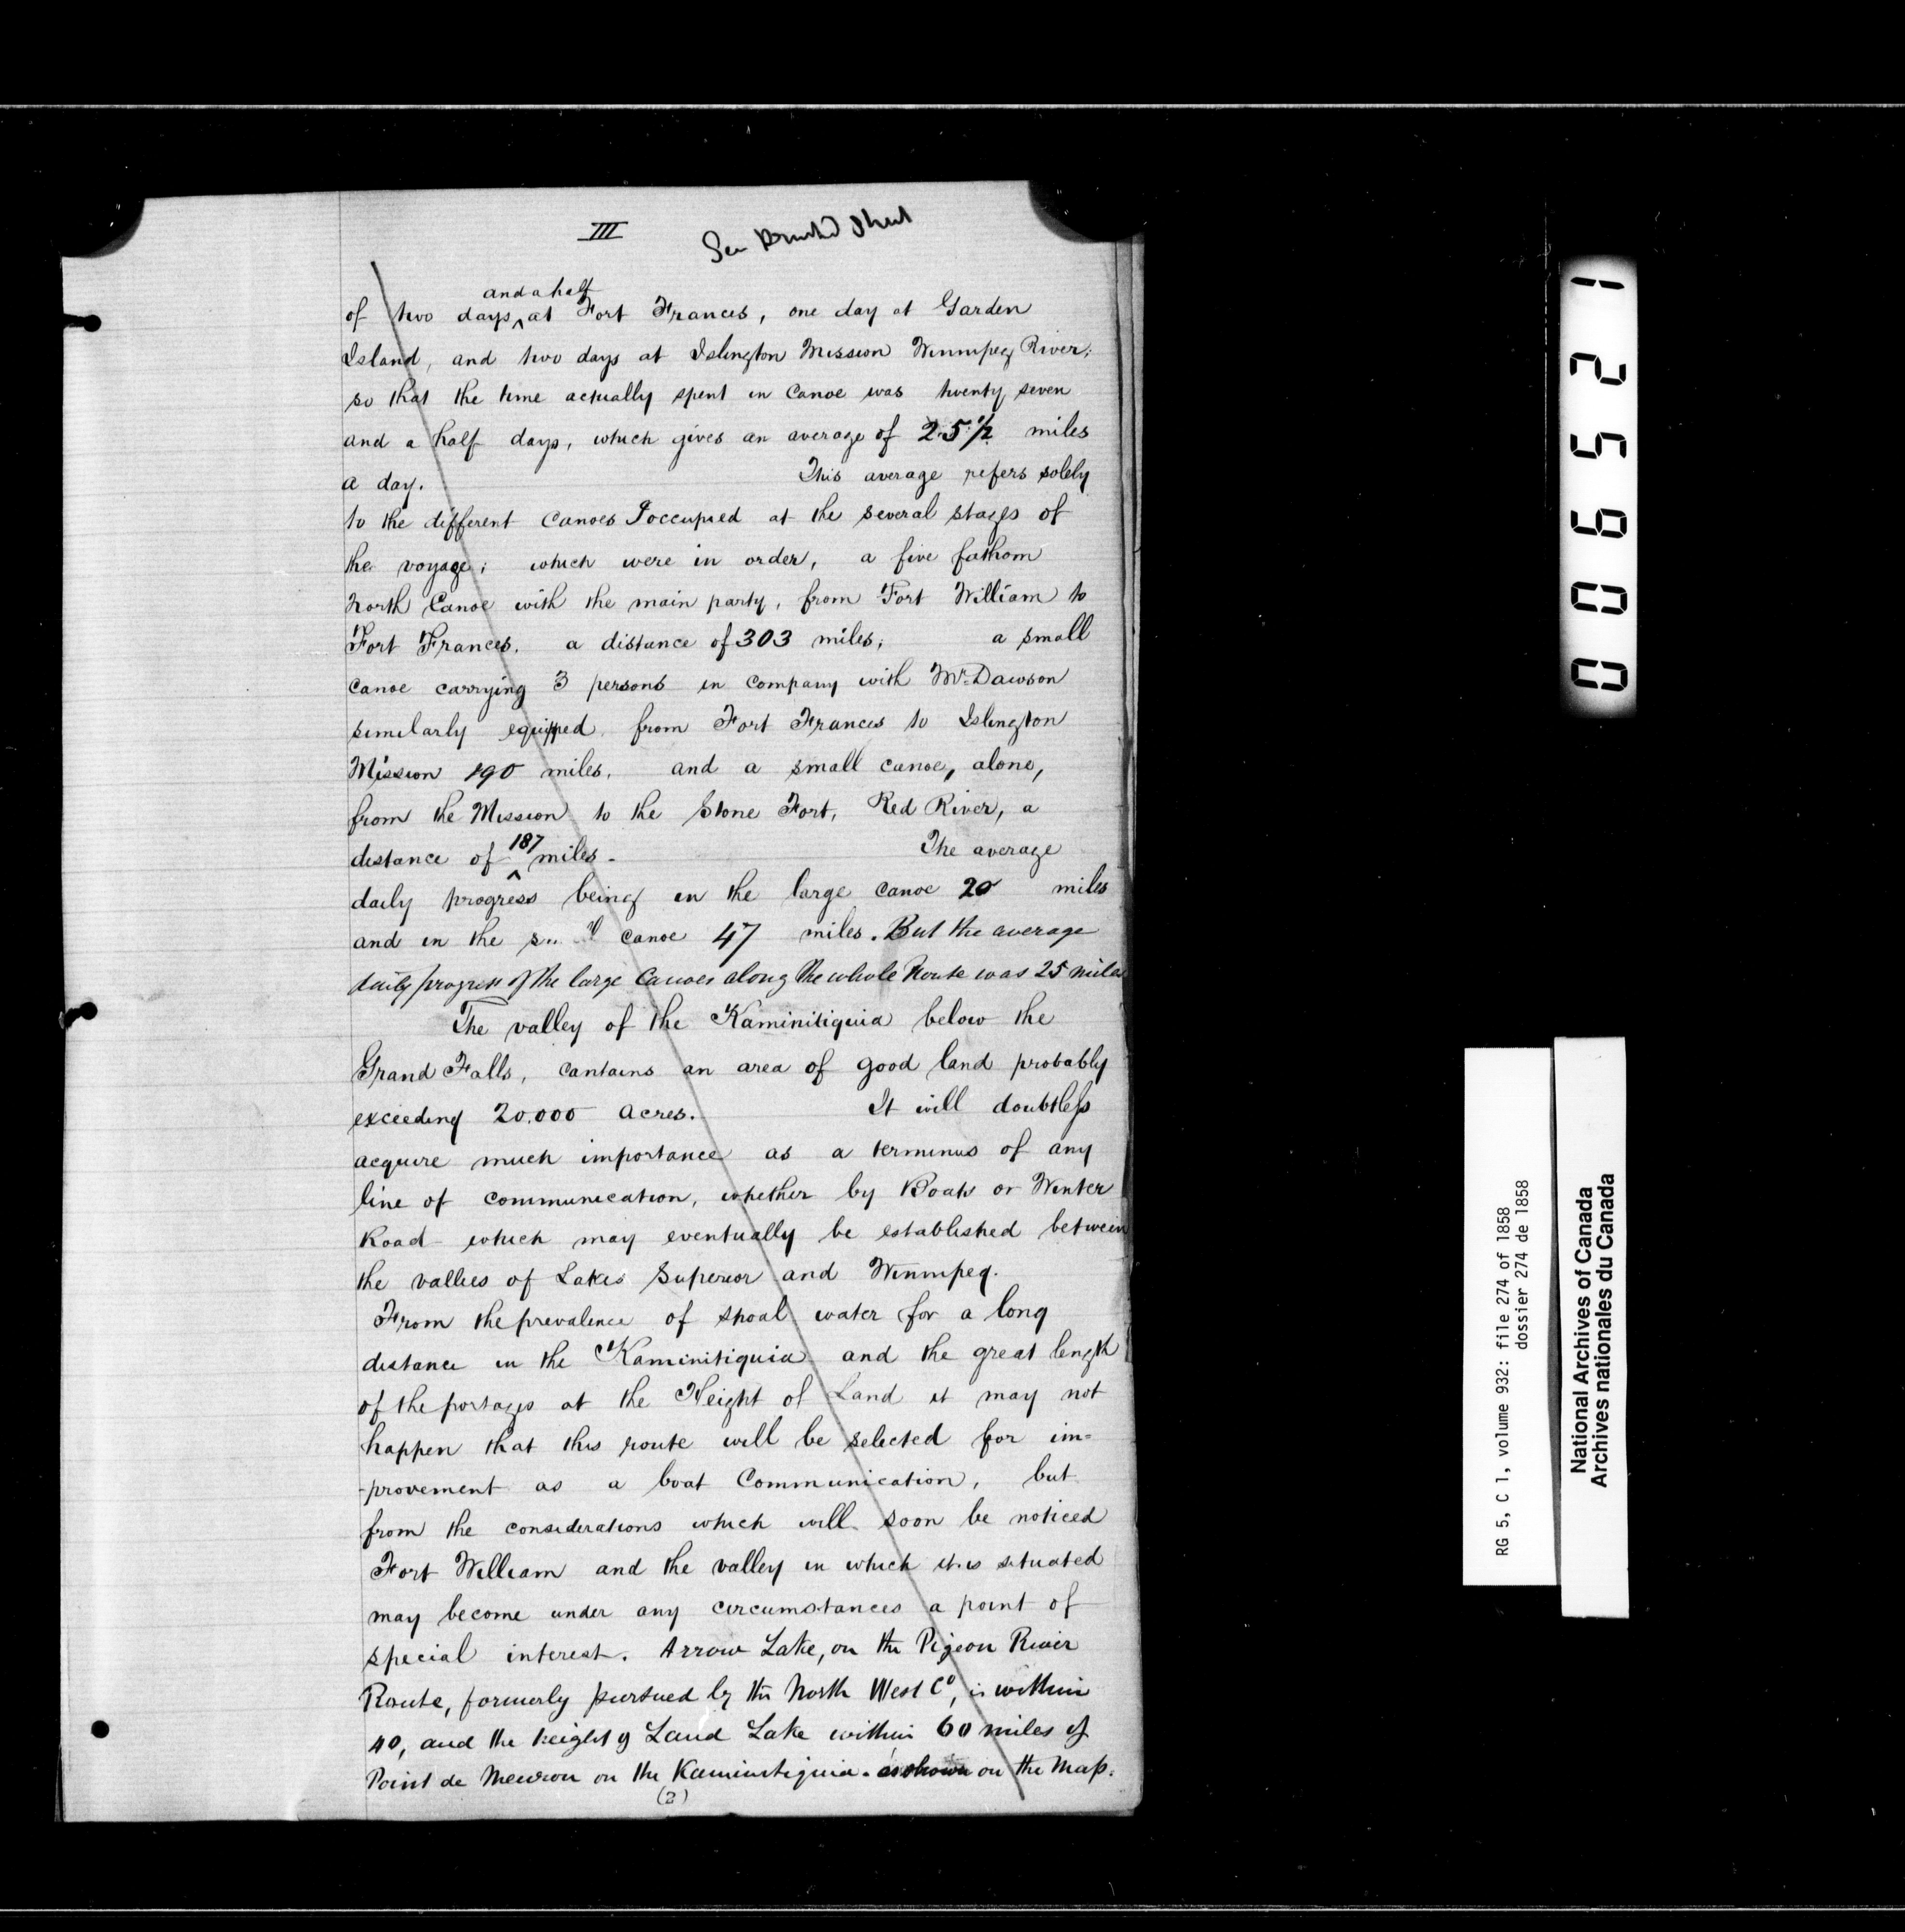 III
See Printed Sheet
and a half
of two days ^ at Fort Frances, one day at Garden
Island, and two days at Islington Mission Winnipeg River;
so that the time actually spent in canoe was twenty seven
and a half days, which gives an average of 25 1/2 miles
a day. This average refers solely
to the different canoes I occupied at the several stages of
the voyage; which were in order, a five fathom
North Canoe with the main party, from Fort William to
Fort Frances, a distance of 303 miles; a small
canoe carrying 3 persons in company with Mr Dawson
similarly equipped, from Fort Frances to Islington
Mission 190 miles, and a small canoe, alone,
from the Mission to the Stone Fort, Red River, a
187
distance of ^ miles. The average
daily progress being in the large canoe 20 miles
and in the canoe 47 miles. But the average
daily progress of the large Canoes along the whole Route was 25 miles
The valley of the Kaministiquia below the
Grand Falls, contains an area of good land probably
exceeding 20.000 acres. It will doubtless
acquire much importance as a terminus of any
line of communication, whether by Boats or Winter
Road which may eventually be established between
the vallies of Lakes Superior and Winnipeg.
From the prevalence of shoal water for a long
distance in the Kaministiquia and the great length
of the portages at the Height of Land it may not
happen that this route will be selected for im=
-provement as a boat Communication, but
from the considerations which will soon be noticed
Fort William and the valley in which it is situated
may become under any circumstances a point of
special interest. Arrow Lake, on the Pigeon River
Route, formerly pursued by the North West Co, is within
40, and the height of Land Lake within 60 miles of
Point de Meuron on the Kaministiquia. as shown on the Map.
(2)
006521
RG 5, C 1, volume 932: file 274 of 1858
dossier 274 de 1858
National Archives of Canada
Archives nationales du Canada